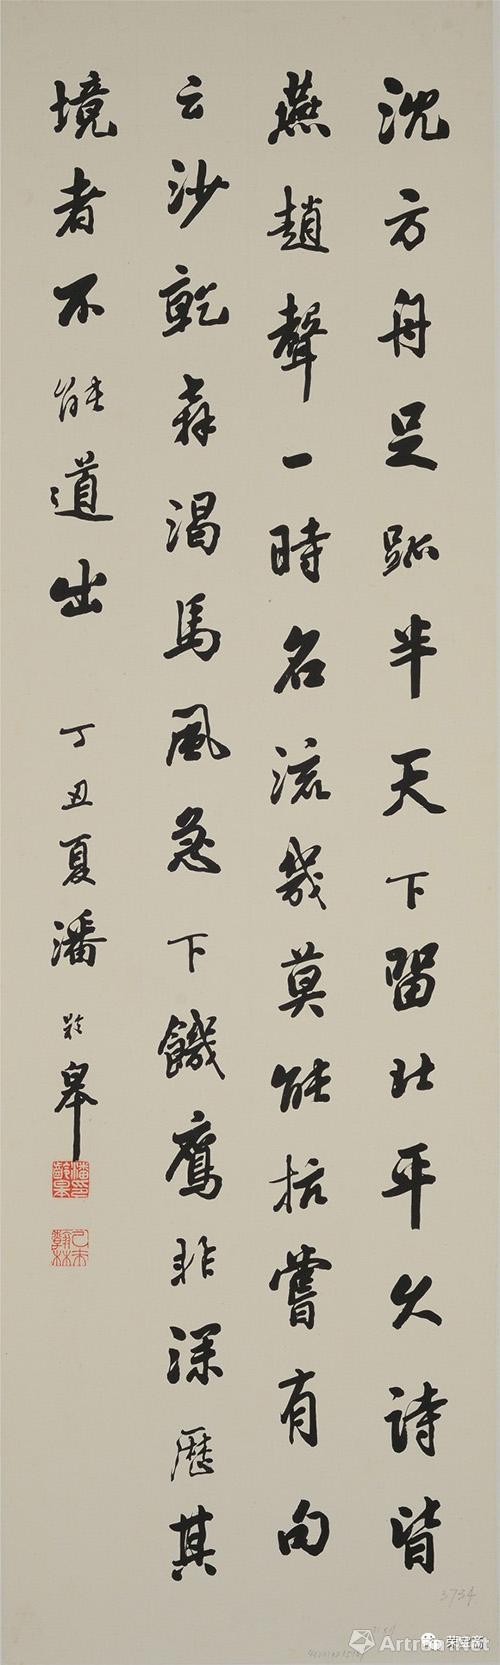 沈方舟足跡半天下留北平久詩皆
燕趙聲一時名流幾莫能抗嘗有句
云沙乾犇渴馬風急下饑鷹非深歷其
境者不能道出
丁丑夏潘齡皋
潘印齡皋
乙未翰林
3734
荣宝斋
Artron.Net